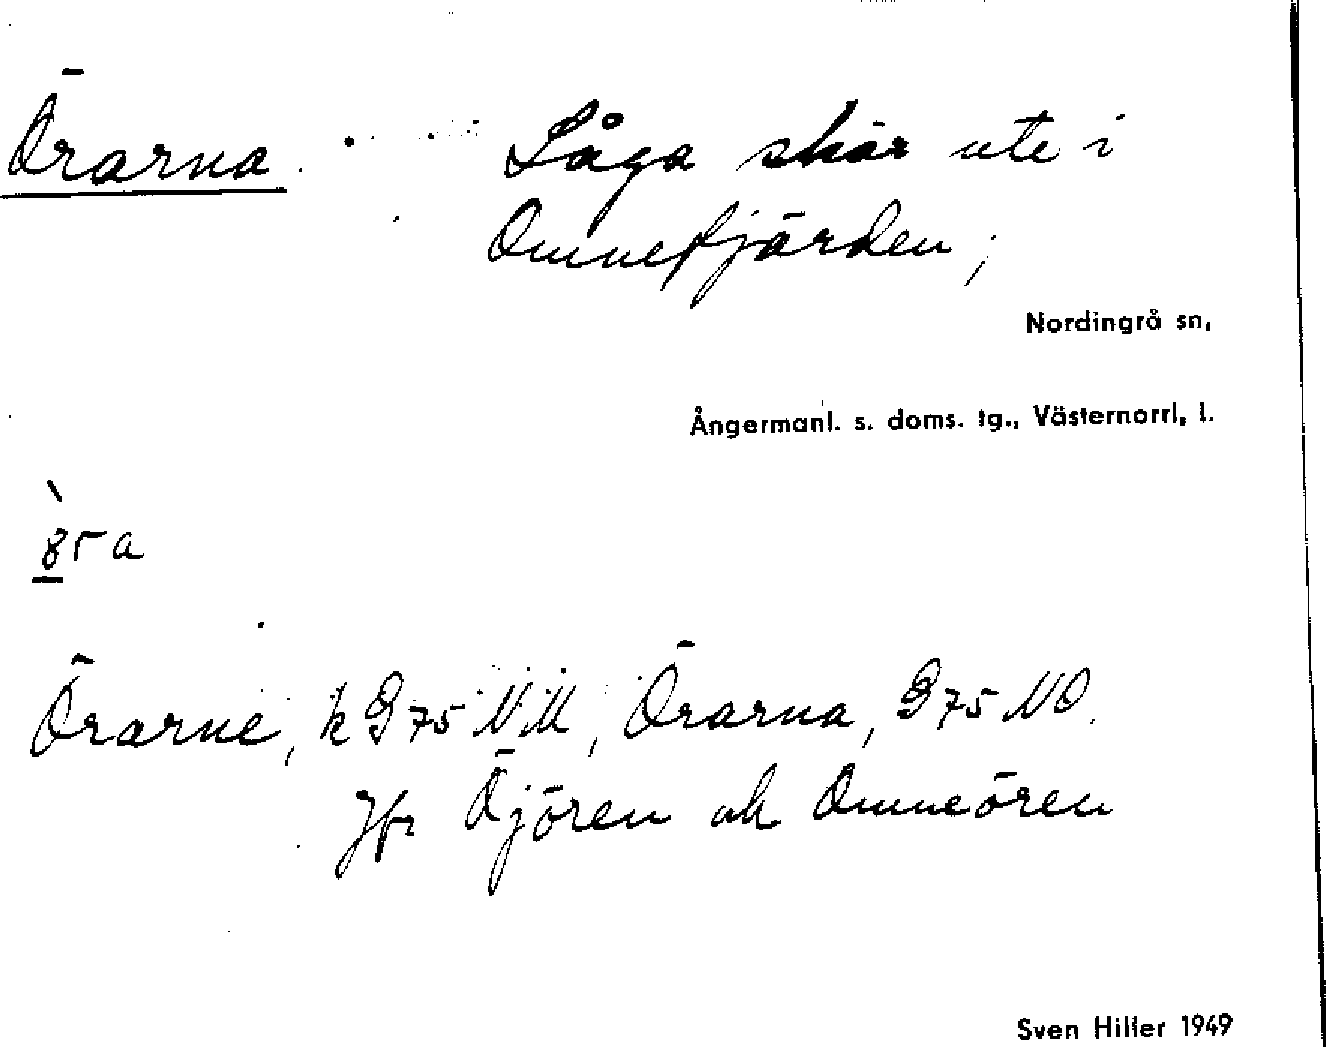 Örarna. Låga skär ute i
Omnefjärden;
Nordingrå sn,
Ångermanl. s. doms. tg., Västernorrl, l.
Örarne, k G 75 NM, Örarna, G 75 NO.
Jfr Öjören ock Omneören
Sven Hiller 1949